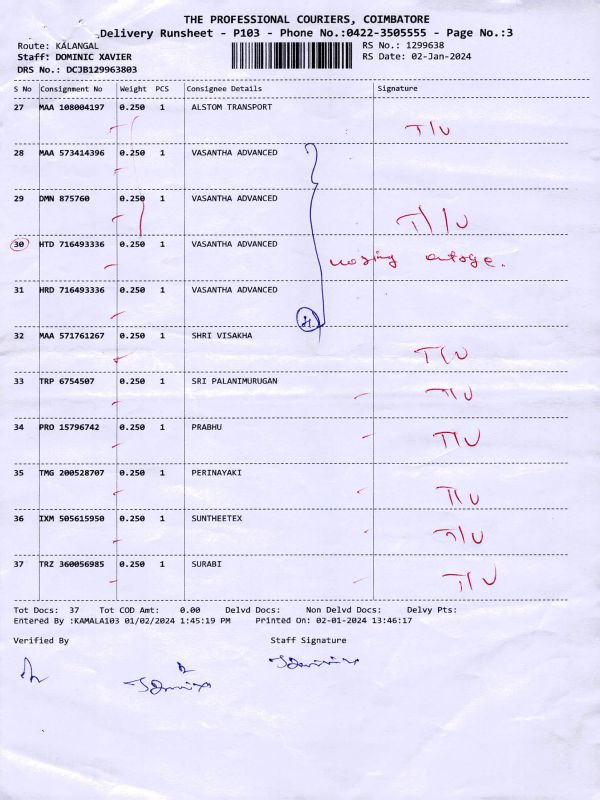 THE PROFESSIONAL COURIERS, COIMBATORE
Delivery Runsheet - P103 - Phone No.:0422-3505555 - Page No.:3
Route: KALANGAL
RS No.: 1299638
Staff: DOMINIC XAVIER
RS Date: 02-Jan-2024
DRS No.: DCJB129963803
S No Consignment No Weight PCS Consignee Details Signature
27 MAA 108004197 0.250 1 ALSTOM TRANSPORT T/U
28 MAA 573414396 0.250 1 VASANTHA ADVANCED
29 DMN 875760 0.250 1 VASANTHA ADVANCED T/U
30 HTD 716493336 0.250 1 VASANTHA ADVANCED
31 HRD 716493336 0.250 1 VASANTHA ADVANCED
32 MAA 571761267 0.250 1 SHRI VISAKHA T/U
33 TRP 6754507 0.250 1 SRI PALANIMURUGAN T/U
34 PRO 15796742 0.250 1 PRABHU T/U
35 TMG 200528707 0.250 1 PERINAYAKI T/U
36 IXM 505615950 0.250 1 SUNTHEETEX T/U
37 TRZ 360056985 0.250 1 SURABI T/U
Tot Docs: 37 Tot COD Amt: 0.00 Delvd Docs: Non Delvd Docs: Delvy Pts:
Entered By :KAMALA103 01/02/2024 1:45:19 PM Printed On: 02-01-2024 13:46:17
Verified By Staff Signature